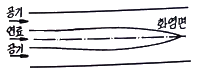 공기
연료
공기
화염면